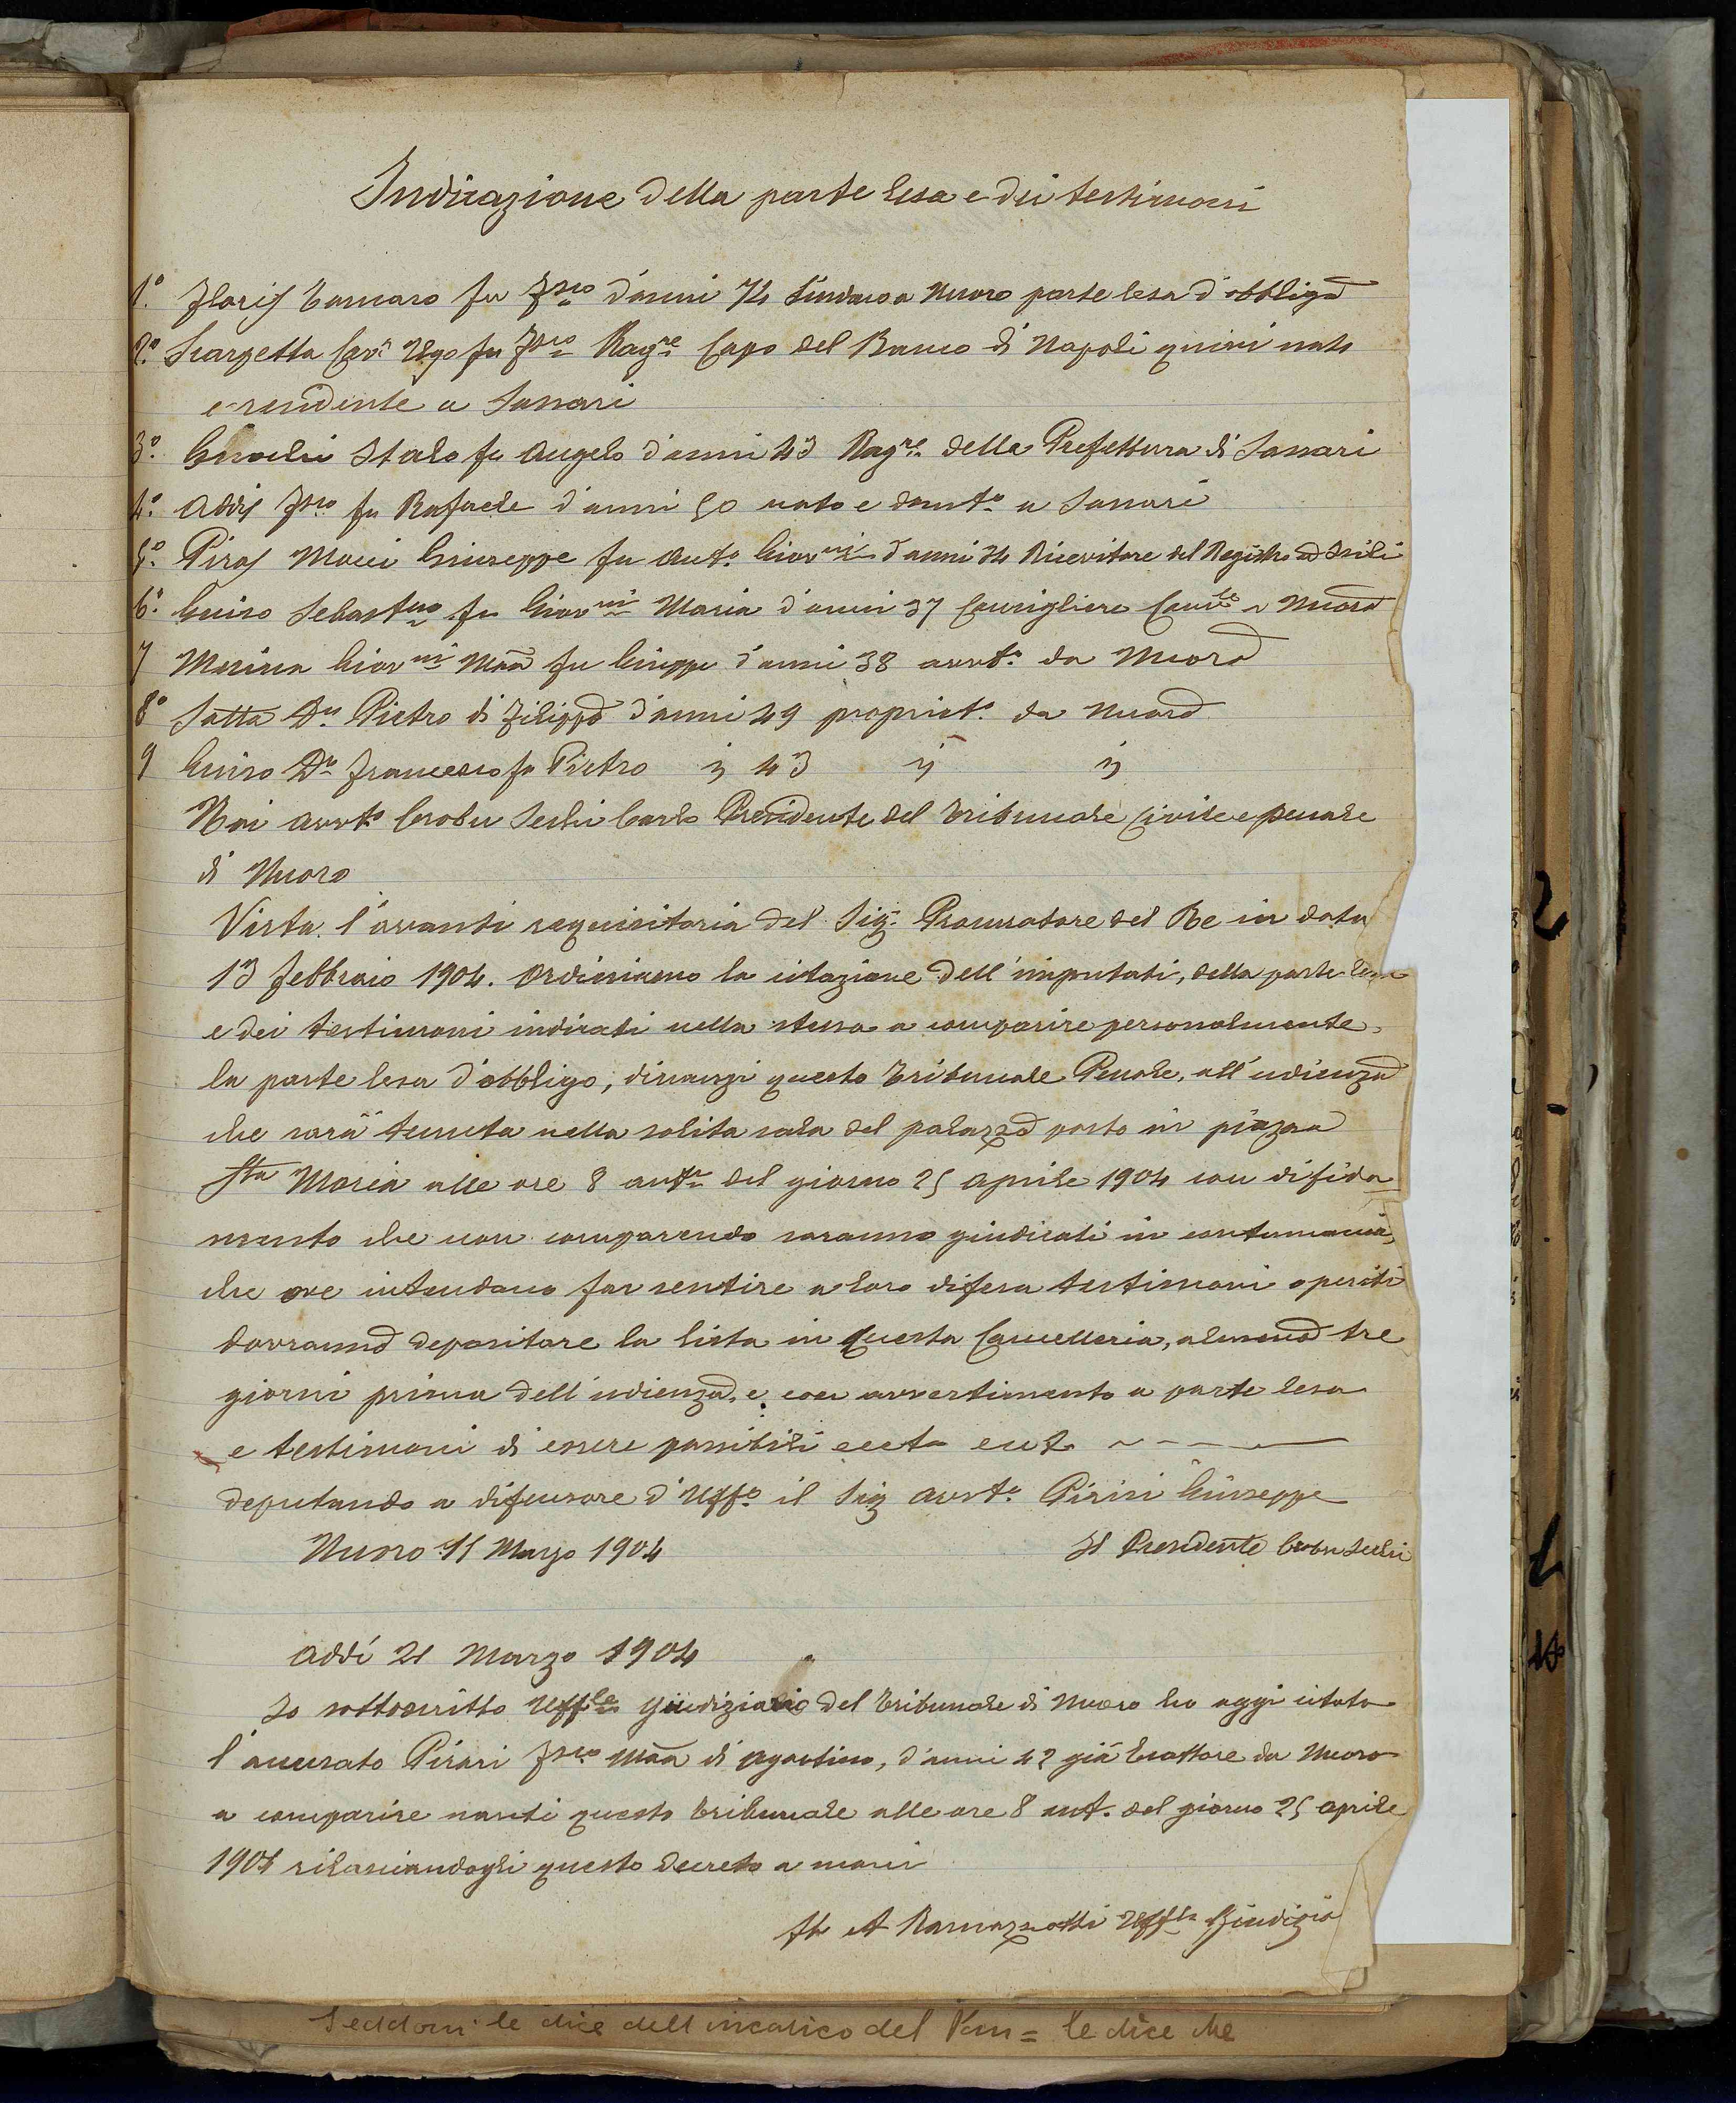 Indicazione della parte lesa e dei testimoni
1.° Floris Tomaso fu Fsco d'anni 74 Sindaco a Nuoro parte lesa d'obbligo
2.° Scarpetta Cavr Ugo fu Fsco Ragre Capo del Banco di Napoli quivi nato
e residente a Sassari
3.° Italo fu Angelo d'anni 43 Ragre della Prefettura di Sassari
4.° Addis Fsco fu Rafaele d'anni 50 nato e domto a Sassari
5.° Piras Mocci Giuseppe fu Anto Giovni d'anni 34 Ricevitore del Registro ad Isili
6.° Guiso Sebastno fu Giovni Maria d'anni 37 Consigliere Comle a Nuoro
7 Merina Giovni Mãa fu Giuseppe d'anni 38 avvto da Nuoro
8° Satta Dn Pietro di Filippo d'anni 49 propriet° da Nuoro
9 Guiso Dn Francesco fu Pietro ij 43 ij ij
Noi avvto Crobu Sechi Carlo Presidente del Tribunale Civile e penale
di Nuoro
Vista l'avanti requisitoria del Sig. Procuratore del Re in data
13 febbraio 1904. Ordiniamo la citazione dell'imputati, della parte lesa
e dei testimoni indicati nella stessa a comparire personalmente,
la parte lesa d'obbligo, dinanzi questo Tribunale Penale, all'udienza
che sarà tenuta nella solita sala del palazzo posto in piazza
Sta Maria alle ore 8 ant. del giorno 25 aprile 1904 con difida
mento che non comparendo saranno giudicati in contumacia,
che ove intendano far sentire a loro difesa testimoni o periti
dovranno depositare la lista in questa Cancelleria, almeno tre
giorni prima dell'udienza, e con avvertimento a parte lesa
e testimoni di essere passibili ecct. ecct.
deputando a difensore d'Uffo il Sig avvto Pirisi Giuseppe
Nuoro 11 Marzo 1904 Il Presidente Crobu Sechi
Addì 21 Marzo 1904
Io sottoscritto Uffle giudiziario del Tribunale di Nuoro ho oggi citato
l'accusato Pirari Fsco Mãa di Agostino, d'anni 42 già Esattore da Nuoro
a comparire nanti questo Tribunale alle ore 8 ant. del giorno 25 aprile
1904 rilasciandogli questo decreto a mani
A Ramazzotti Uffle Giudizio
Seddoni le dice dell'incarico del = le dice che